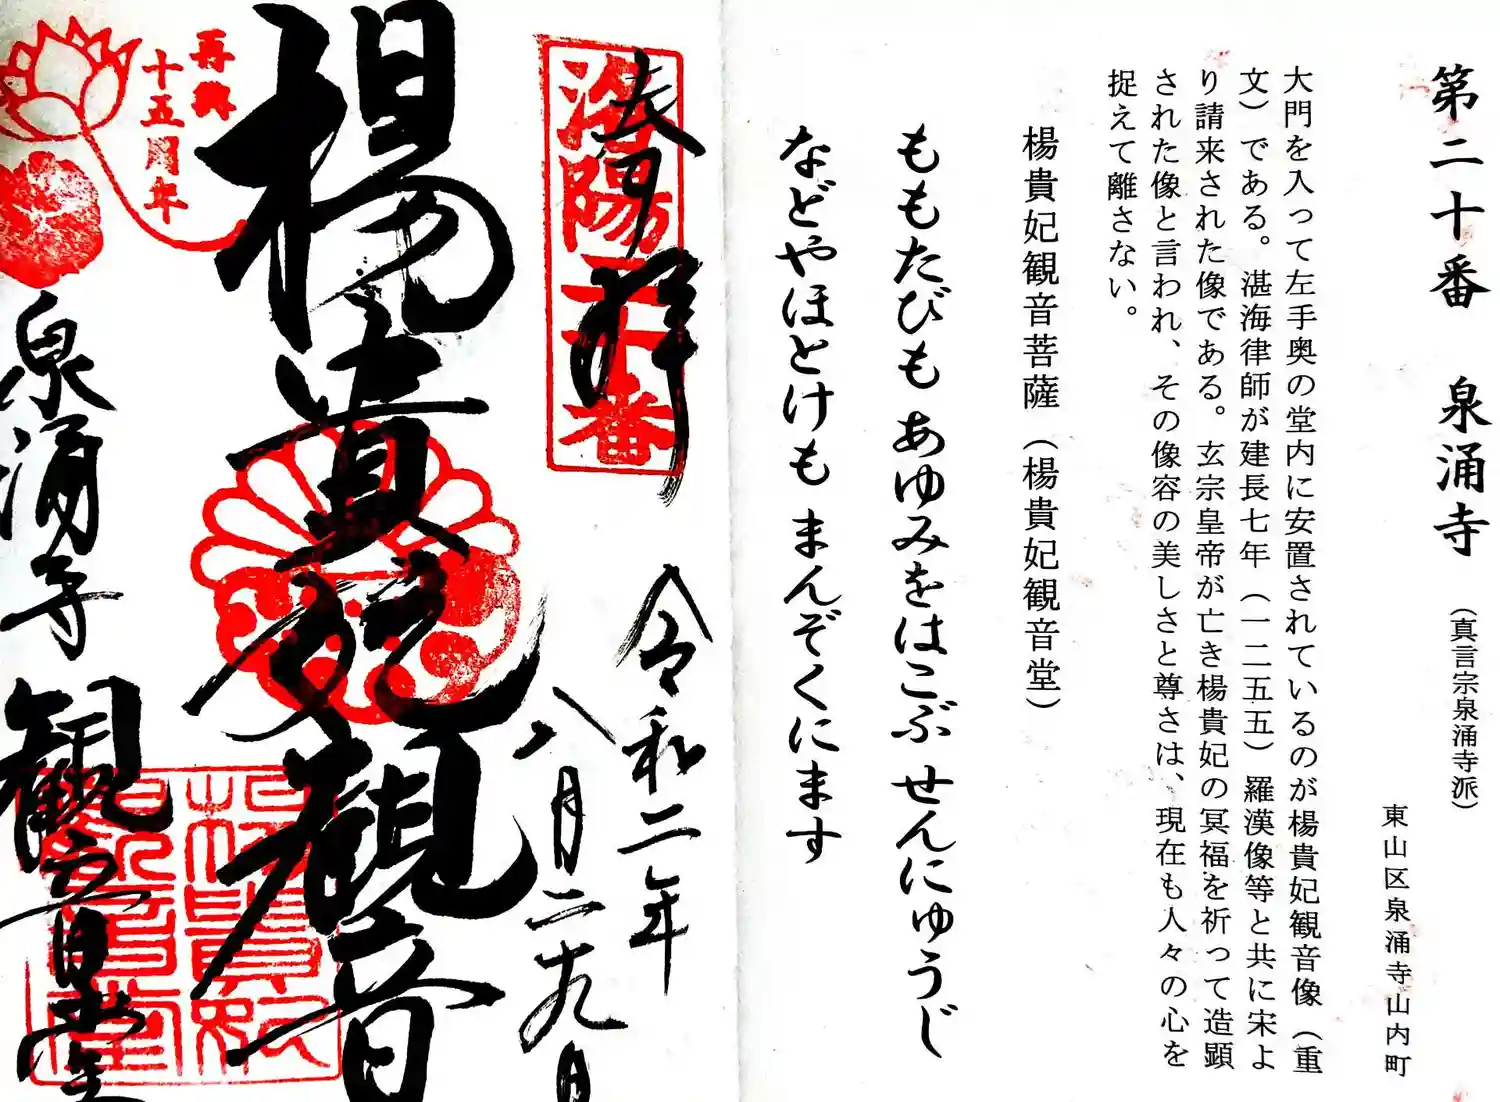 第二十番 泉涌寺 (真言宗泉涌寺派)
東山区泉涌寺山内町
大門を入って左手奥の堂内に安置されているのが楊貴妃観音像(重
文)である。湛海律師が建長七年(一二五五)羅漢像等と共に宋よ
り請来された像である。玄宗皇帝が亡き楊貴妃の冥福を祈って造顕
された像と言われ、その像容の美しさと尊さは、現在も人々の心を
捉えて離さない。
楊貴妃観音菩薩(楊貴妃観音堂)
ももたびも あゆみをはこぶ せんにゅうじ
などやほとけも まんぞくにます
奉拝
洛陽二十番
令和二年
八月二十九日
楊貴妃観音
再興
十五周年
泉涌寺
観音堂
楊貴妃
観音堂